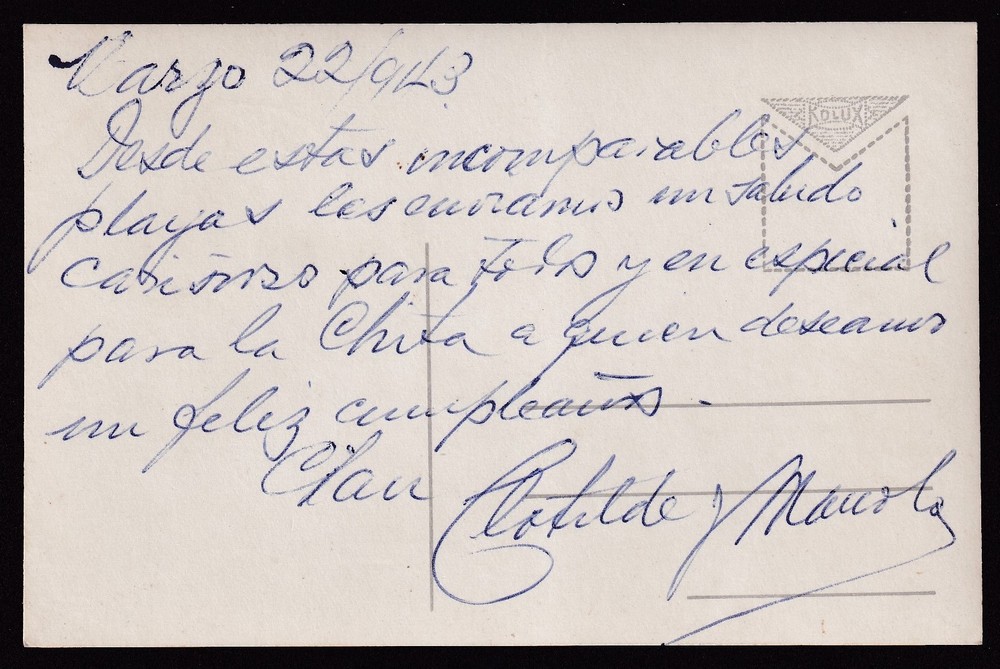 Marzo 22/943
KOLUX
Desde estas incomparables
playas les enviamos un saludo
cariñoso para todos y en especial
para la Chita a quien deseamos
un feliz cumpleaños.
Clotilde y Manola